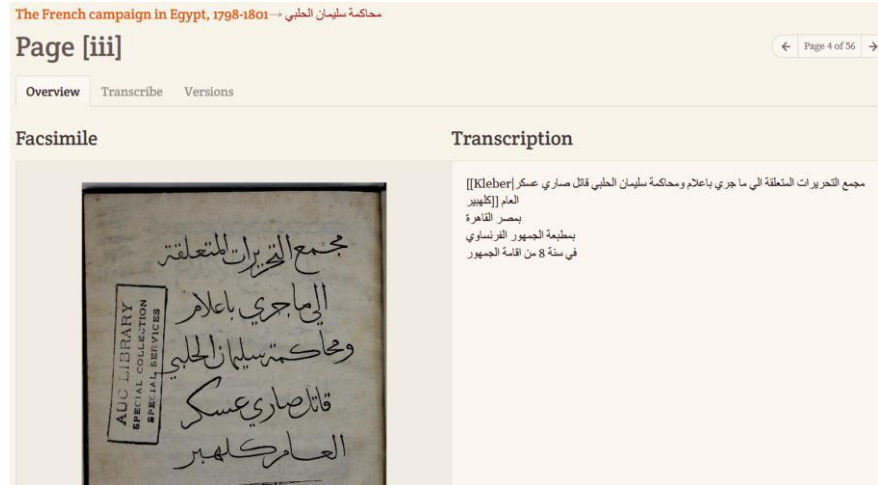 The French campaign in Egypt, 1798-1801→محاكمة سليمان الحلبي
Page [iii]
← Page 4 of 56 →
Overview Transcribe Versions
Facsimile
مجمع التحريرات المتعلقة
الي ما جري باعلام
ومحاكمة سليمان الحلبي
قاتل صاري عسكر
العام كلهبر
AUC LIBRARY
SPECIAL COLLECTION
SPECIAL SERVICES
Transcription
مجمع التحريرات المتعلقة الي ما جري باعلام ومحاكمة سليمان الحلبي قاتل صاري عسكر|Kleber]]
العام [[كلهبير
بمصر القاهرة
بمطبعة الجمهور الفرنساوي
في سنة 8 من اقامة الجمهور